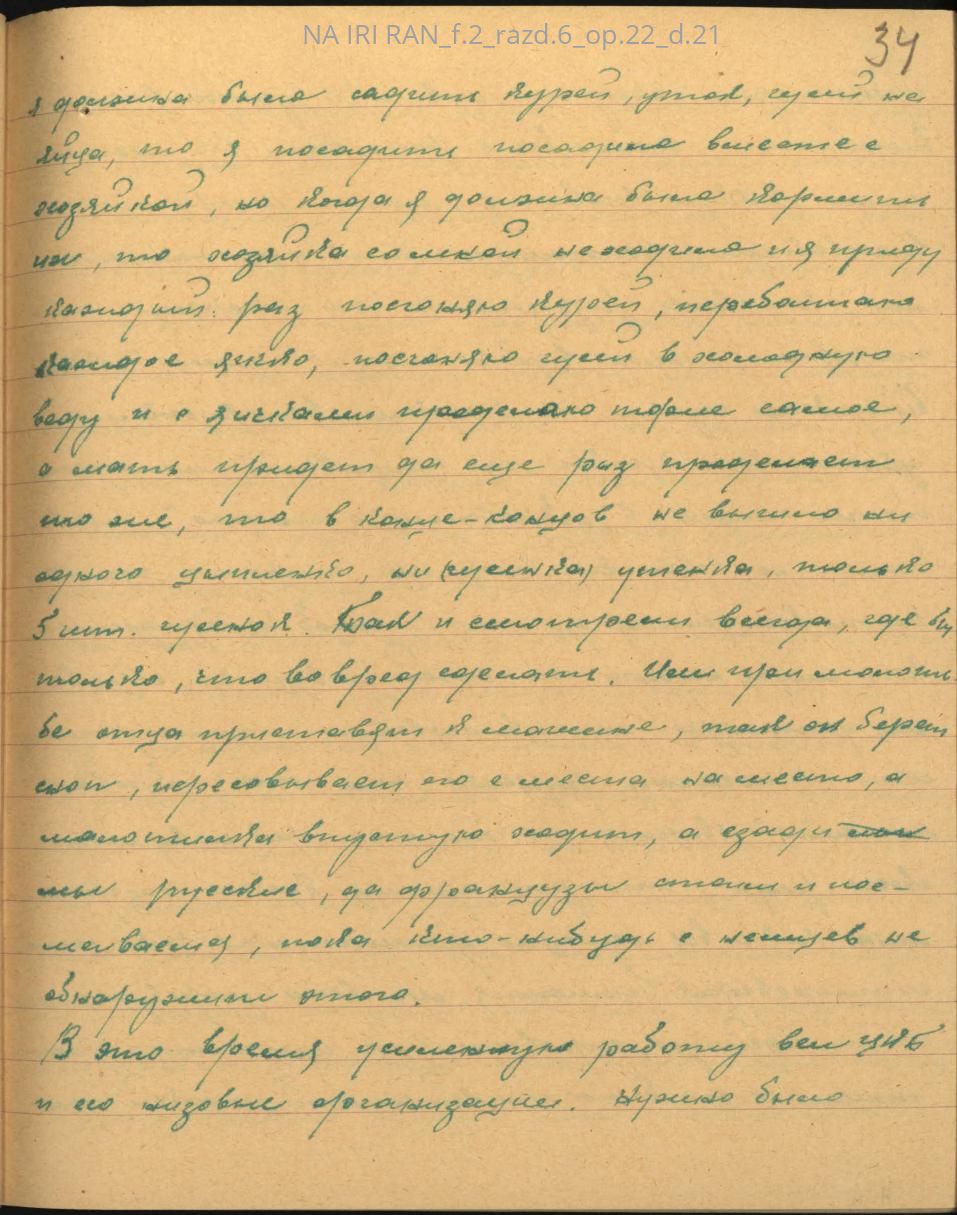 NA IRI RAN_f.2_razd.6_op.22_d.21
34
я должна была садить курей, уток, гусей на
яйца, то я посадить посадила вместе с
хозяйкой, но когда я должна была кормить
их, то хозяйка со мной не ходила и я приду
каждый раз посгоняю курей, переболтаю
каждое яичко, посгоняю гусей в холодную
воду и с яичками проделаю тоже самое,
а мать придет да еще раз проделает
то же, то в конце-концов не вышло ни
одного цыпленка, ни (гусенка) утенка, только
5 шт. гусенок. Так и смотрели всегда, где бы
только, что во вред сделать. Или при молоть-
бе отца приставят к машине, так он берет
сноп, пересовывает его с места на место, а
молотилка впустую ходит, а сзади
мы русские, да французы стоим и пос-
меиваемся, пока кто-нибудь с немцев не
обнаружит этого.
В это время усиленную работу вел ЦКБ
и его низовые организации. Нужно было